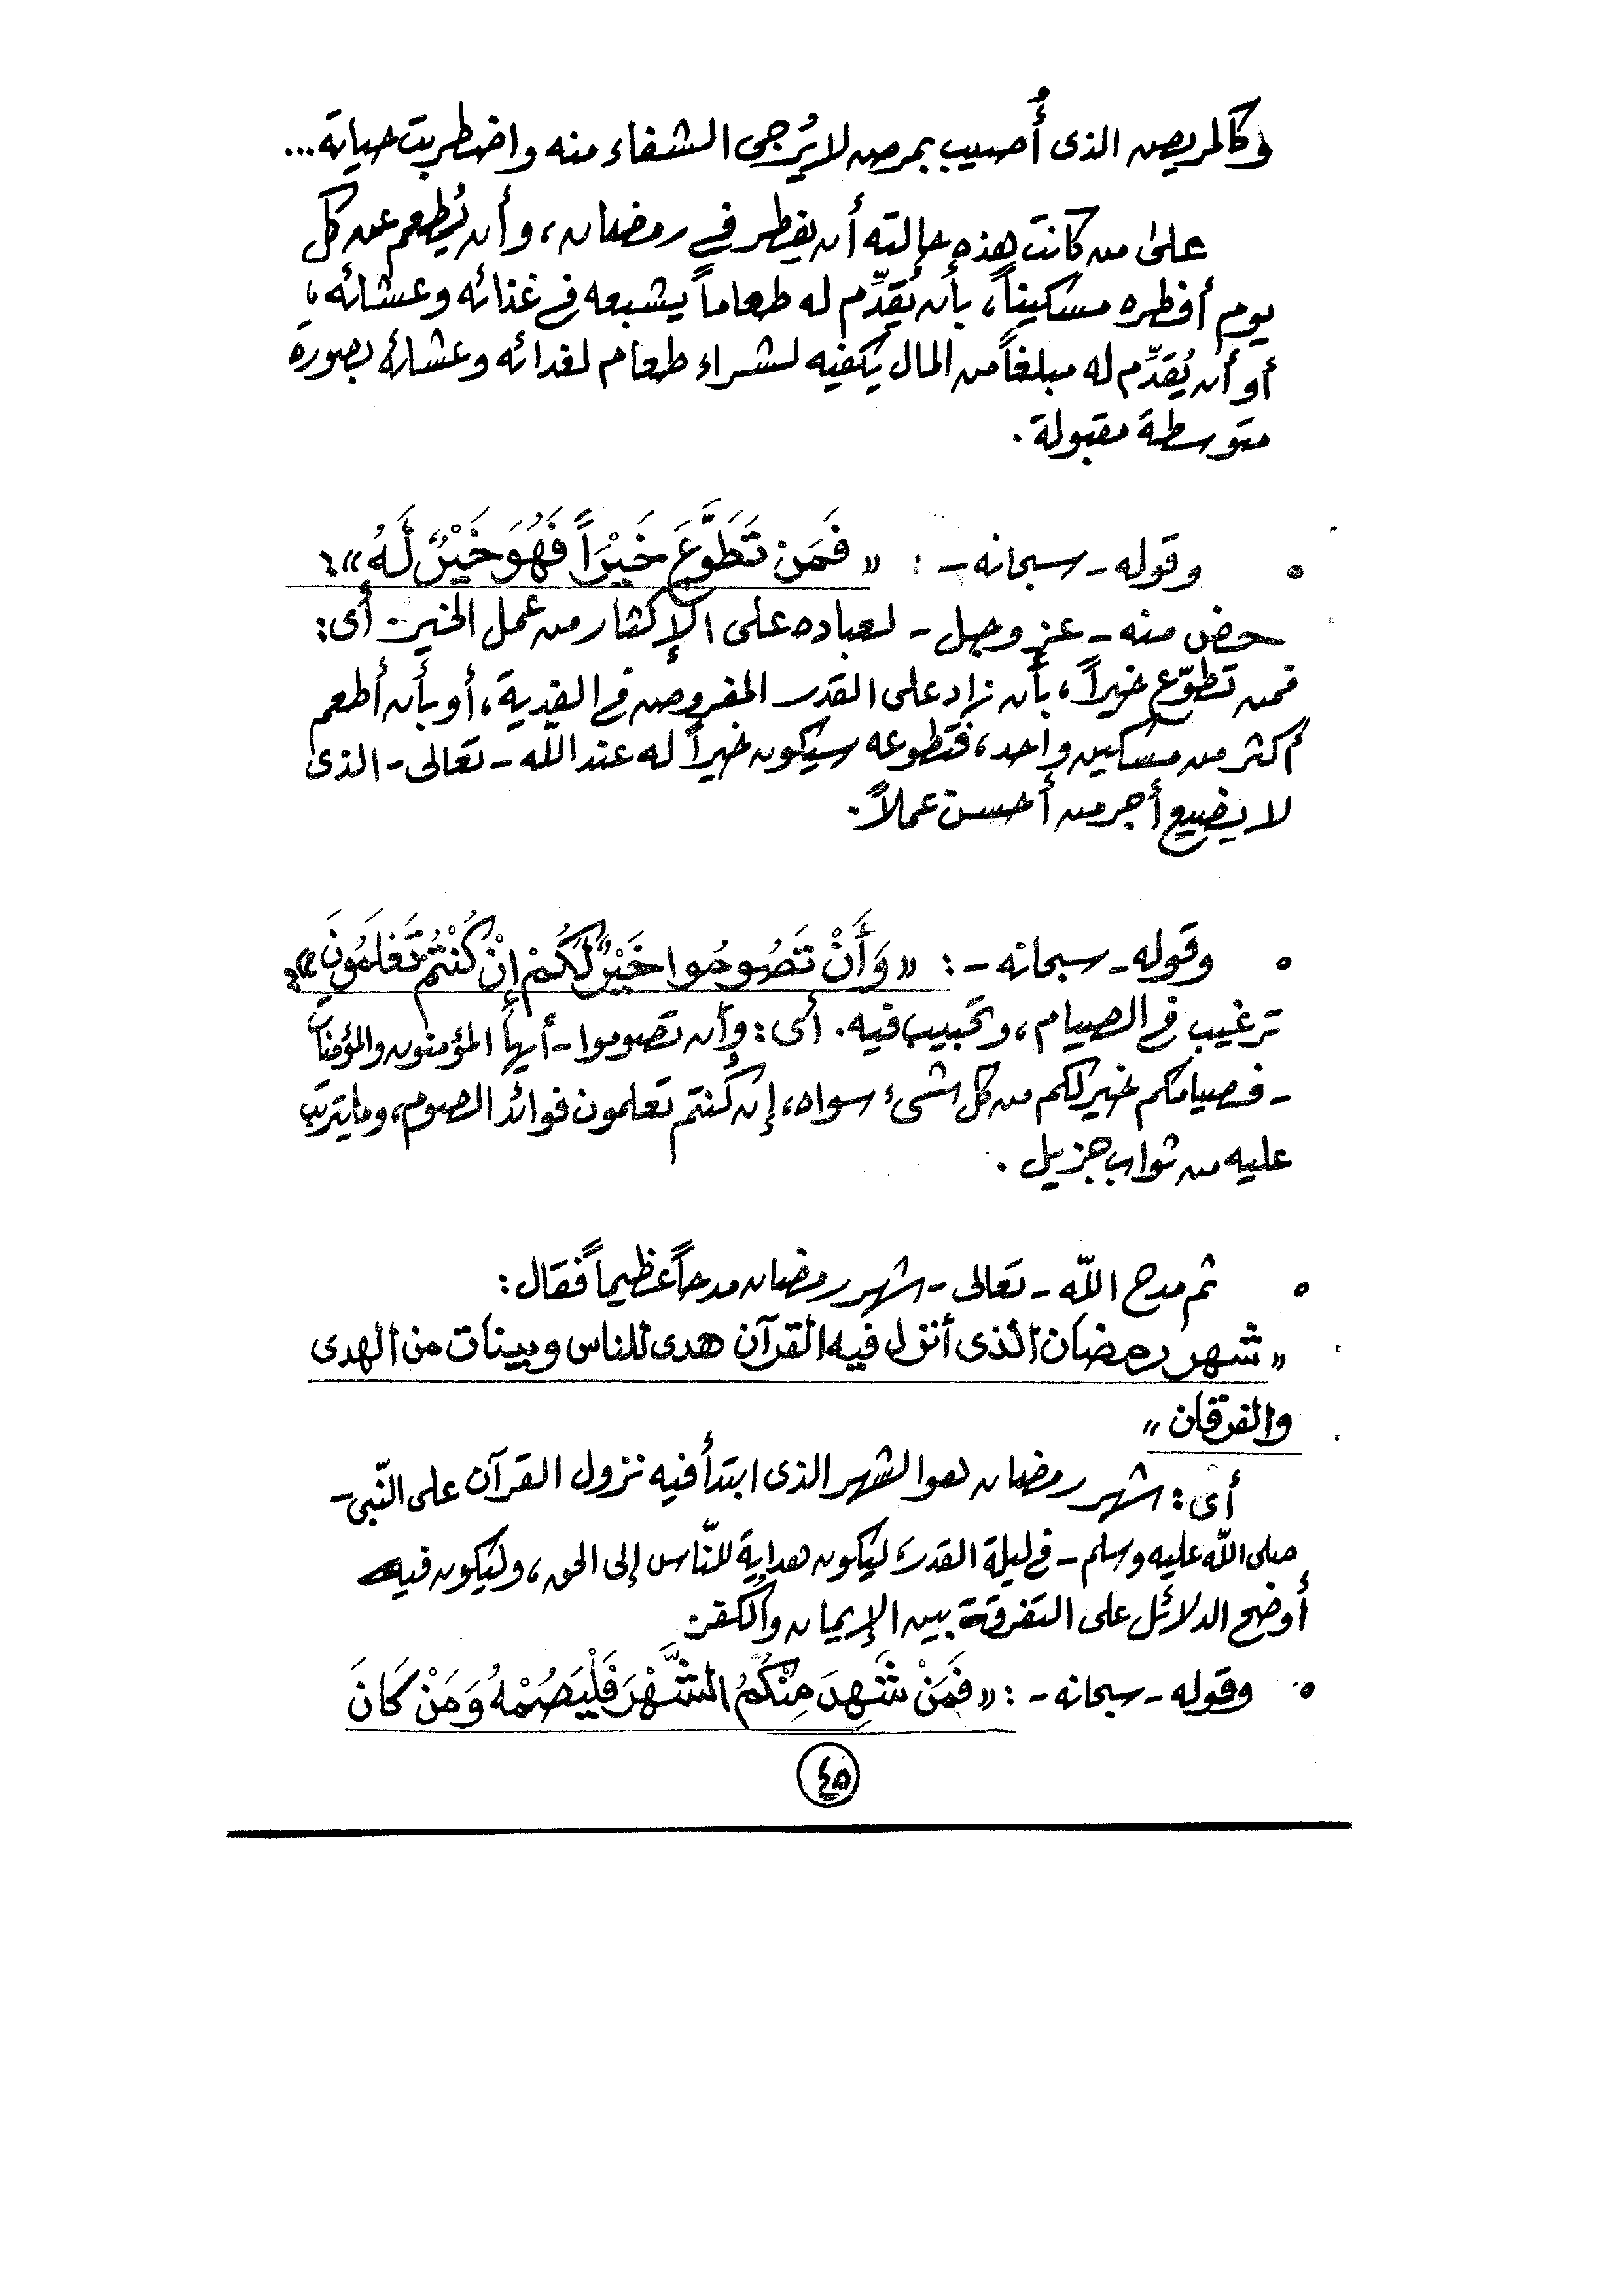 وكالمريض الذى أُصيب بمرض لا يُرجى الشفاء منه واضطربت حياته...
على من كانت هذه حالته أن يفطر فى رمضان، وأن يُطعم عن كل
يوم أفطره مسكيناً، بأن يُقدِّم له طعاماً يشبعه فى غذائه وعشائه،
أو أن يُقدِّم له مبلغاً من المال يكفيه لشراء طعام لغدائه وعشائه بصورة
متوسطة مقبولة.
• وقوله - سبحانه - : «فَمَن تَطَوَّعَ خَيْرَاً فَهُوَ خَيْرٌ لَهُ»:
حض منه - عز وجل - لعباده على الإكثار من عمل الخير. أى:
فمن تطوّع خيراً، بأن زاد على القدر المفروض فى الفدية، أو بأن أطعم
أكثر من مسكين واحد، فتطوعه سيكون خيراً له عند اللّه - تعالى - الذى
لا يضيع أجر من أحسن عملاً.
• وقوله - سبحانه - : «وَأَنْ تَصُومُوا خَيْرٌ لَكُمْ إِنْ كُنْتُمْ تَعْلَمُونَ»:
ترغيب فى الصيام، وتحبيب فيه. أى: وأن تصوموا - أيها المؤمنون والمؤمنات
- فصيامكم خير لكم من كل شىء سواه، إن كُنتم تعلمون فوائد الصوم، وما يترتب
عليه من ثواب جزيل.
• ثم مدح اللّه - تعالى - شهر رمضان مدحاً عظيماً فقال:
«شهر رمضان الذى أنزل فيه القرآن هدى للناس وبينات من الهدى
والفرقان»
أى: شهر رمضان هو الشهر الذى ابتدأ فيه نزول القرآن على النّبى -
صلى اللّه عليه وسلم - فى ليلة القدر، ليكون هداية للنّاس إلى الحق، وليكون فيه
أوضح الدلائل على التفرقة بين الإيمان والكفر.
• وقوله - سبحانه - : «فَمَنْ شَهِدَ مِنْكُمُ الشَّهْرَ فَلْيَصُمْهُ وَمَنْ كَانَ
٤٥